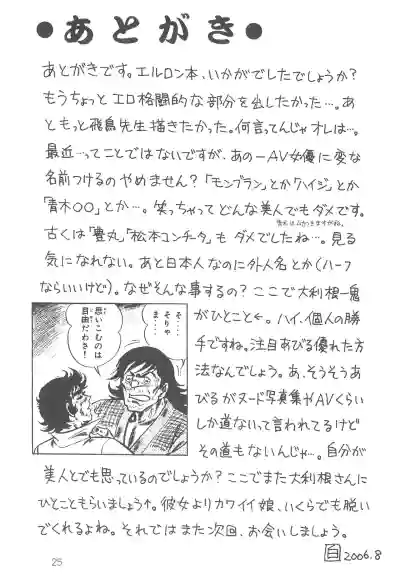 ●あとがき●
あとがきです。エルロン本、いかがでしたでしょうか?
もうちょっとエロ格闘的な部分を出したかった…。あ
ともっと飛鳥先生描きたかった。何言ってんじゃオレは…。
最近…ってことではないですが、あの-AV女優に変な
名前つけるのやめません?「モンブラン」とか「ハイジ」とか
「青木〇〇」とか…。笑っちゃってどんな美人でもダメです。
古くは「豊丸」「松本コンチータ」もダメでしたね…。見る
気になれない。あと日本人なのに外人名とか(ハーフ
ならいいけど)。なぜそんな事するの?ここで大利根一鬼
がひとこと←。ハイ、個人の勝
手ですね。注目あびる優れた方
法なんでしょう。あ、そうそうあ
びるがヌード写真集やAVくらい
しか道ないって言われてるけど
その道もないんじゃ…。自分が
そ…
そりゃ
ま…
思いこむのは
自由だわさ!
美人とでも思っているのでしょうか?ここでまた大利根さんに
ひとこともらいましょう↑。彼女よりカワイイ娘、いくらでも脱い
でくれるよね。それではまた次回、お会いしましょう。
白 2006.8
25